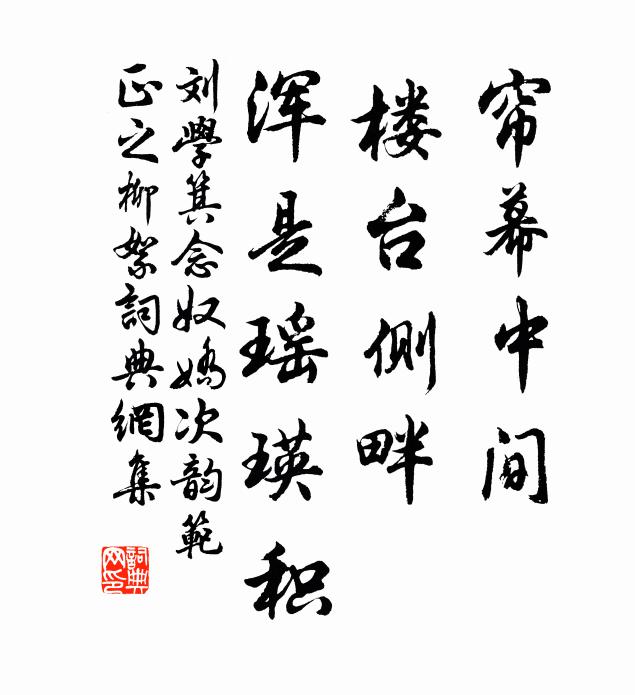 帘幕中间
楼台侧畔
浑是瑶瑛积
刘學箕念奴嬌次韵範
正之柳絮詞典網集
詞典网印